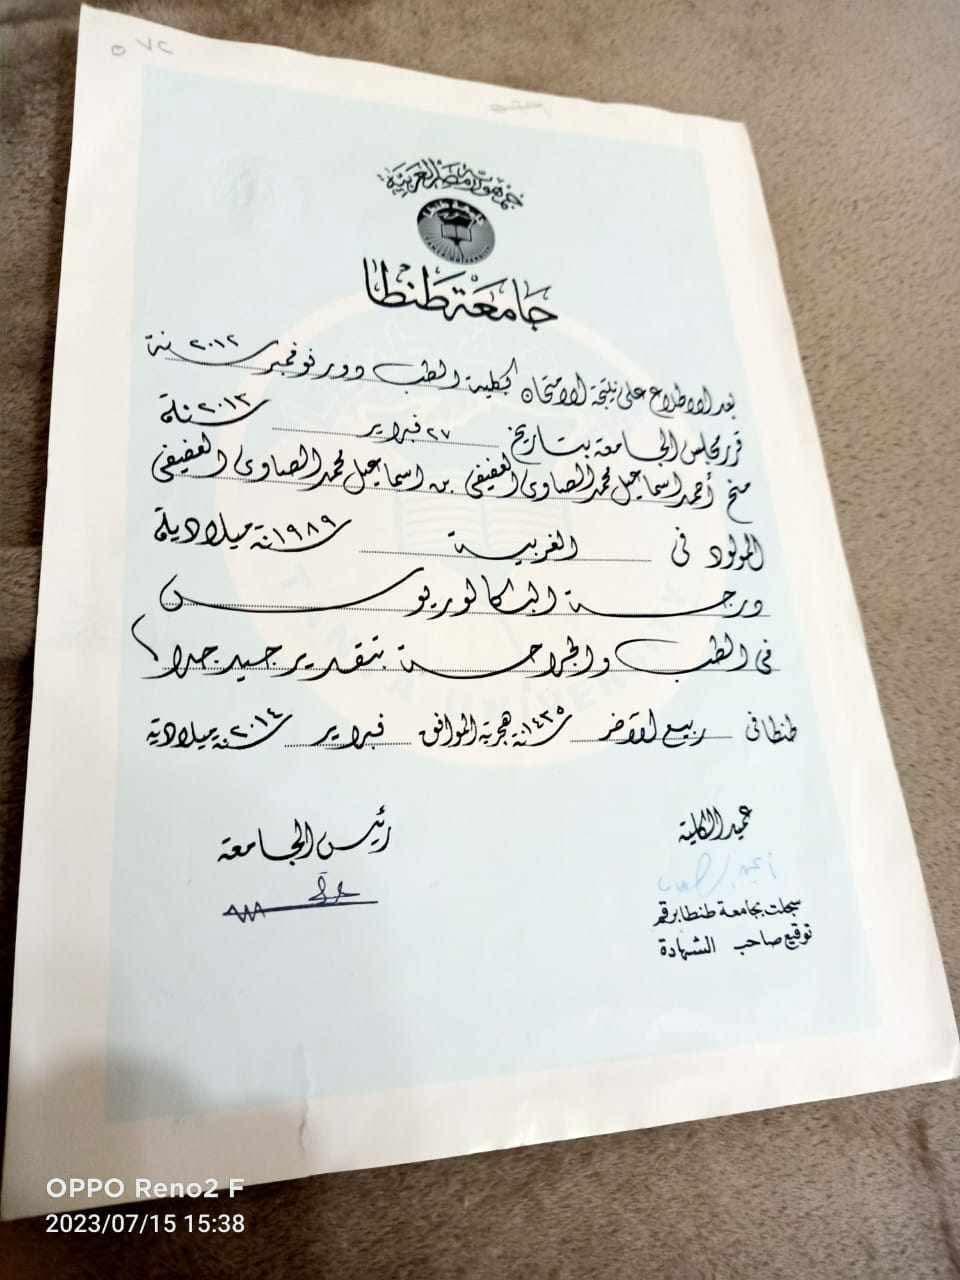 جمهورية مصر العربية
جامعة طنطا
بعد الاطلاع على نتيجة الامتحان لكلية الطب دور نوفمبر سنة ٢٠١٢
قرر مجلس الجامعة بتاريخ ٢٧ فبراير سنة ٢٠١٣
منح أحمد اسماعيل محمد الصاوى العفيفى بن اسماعيل محمد الصاوى العفيفى
المولود فى الغربية سنة ١٩٨٩ ميلادية
درجة البكالوريوس
فى الطب والجراحة بتقدير جيد جدا
طنطا فى ربيع الآخر سنة ١٤٣٥ هجرية الموافق فبراير سنة ٢٠١٤ ميلادية
عميد الكلية
رئيس الجامعة
سجلت بجامعة طنطا برقم
توقيع صاحب الشهادة
OPPO Reno2 F
2023/07/15 15:38